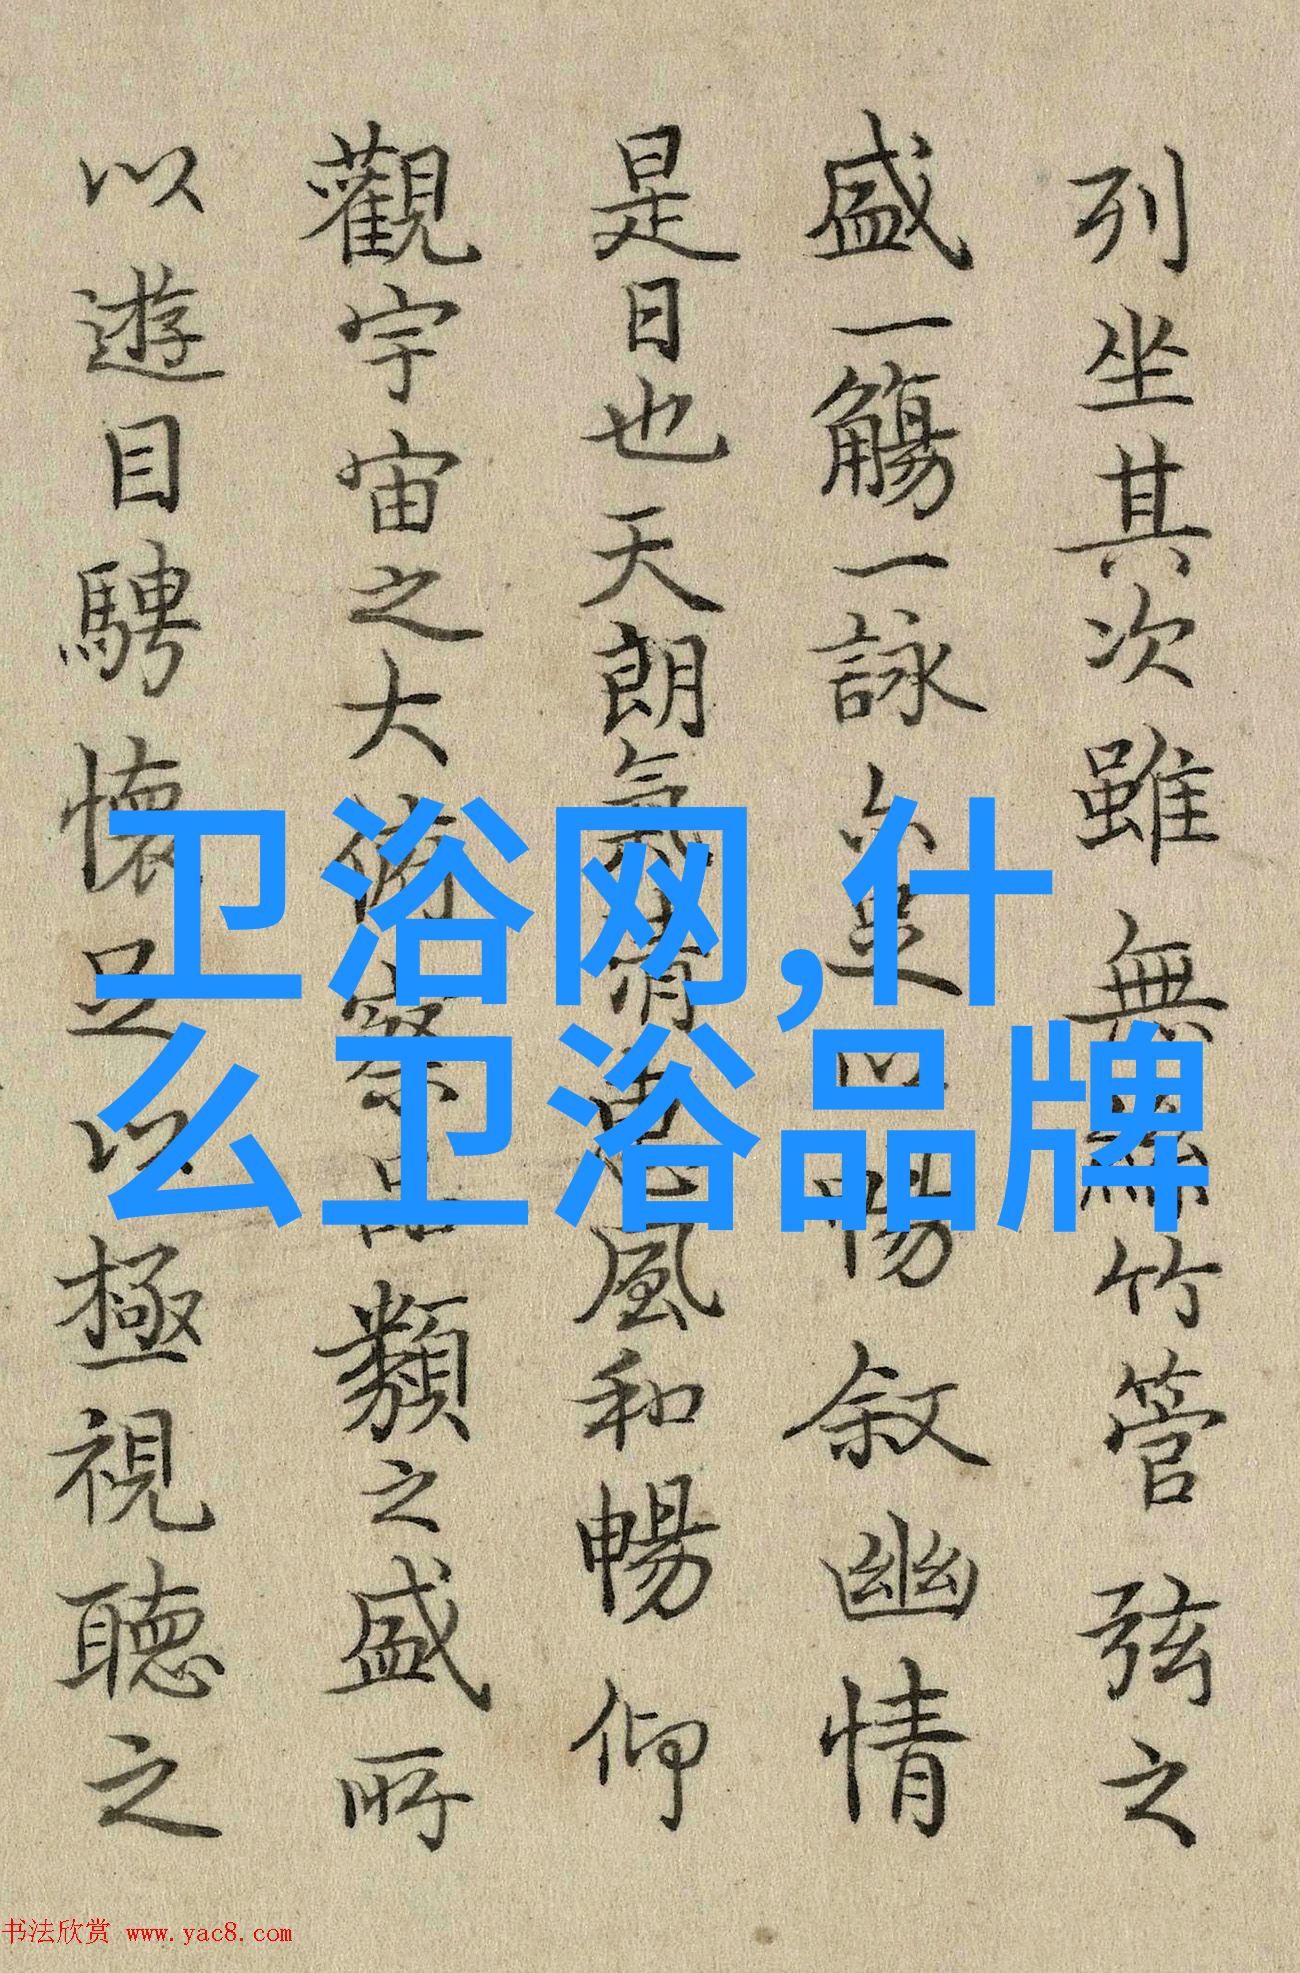 列坐其次雖無絲竹管弦之
盛一觴一詠亦足以暢叙幽情
是日也天朗氣清惠風和暢仰
觀宇宙之大俯察品類之盛所
以遊目騁懷足以極視聽之
卫浴网,什
么卫浴品牌
书法欣赏 www.yac8.com